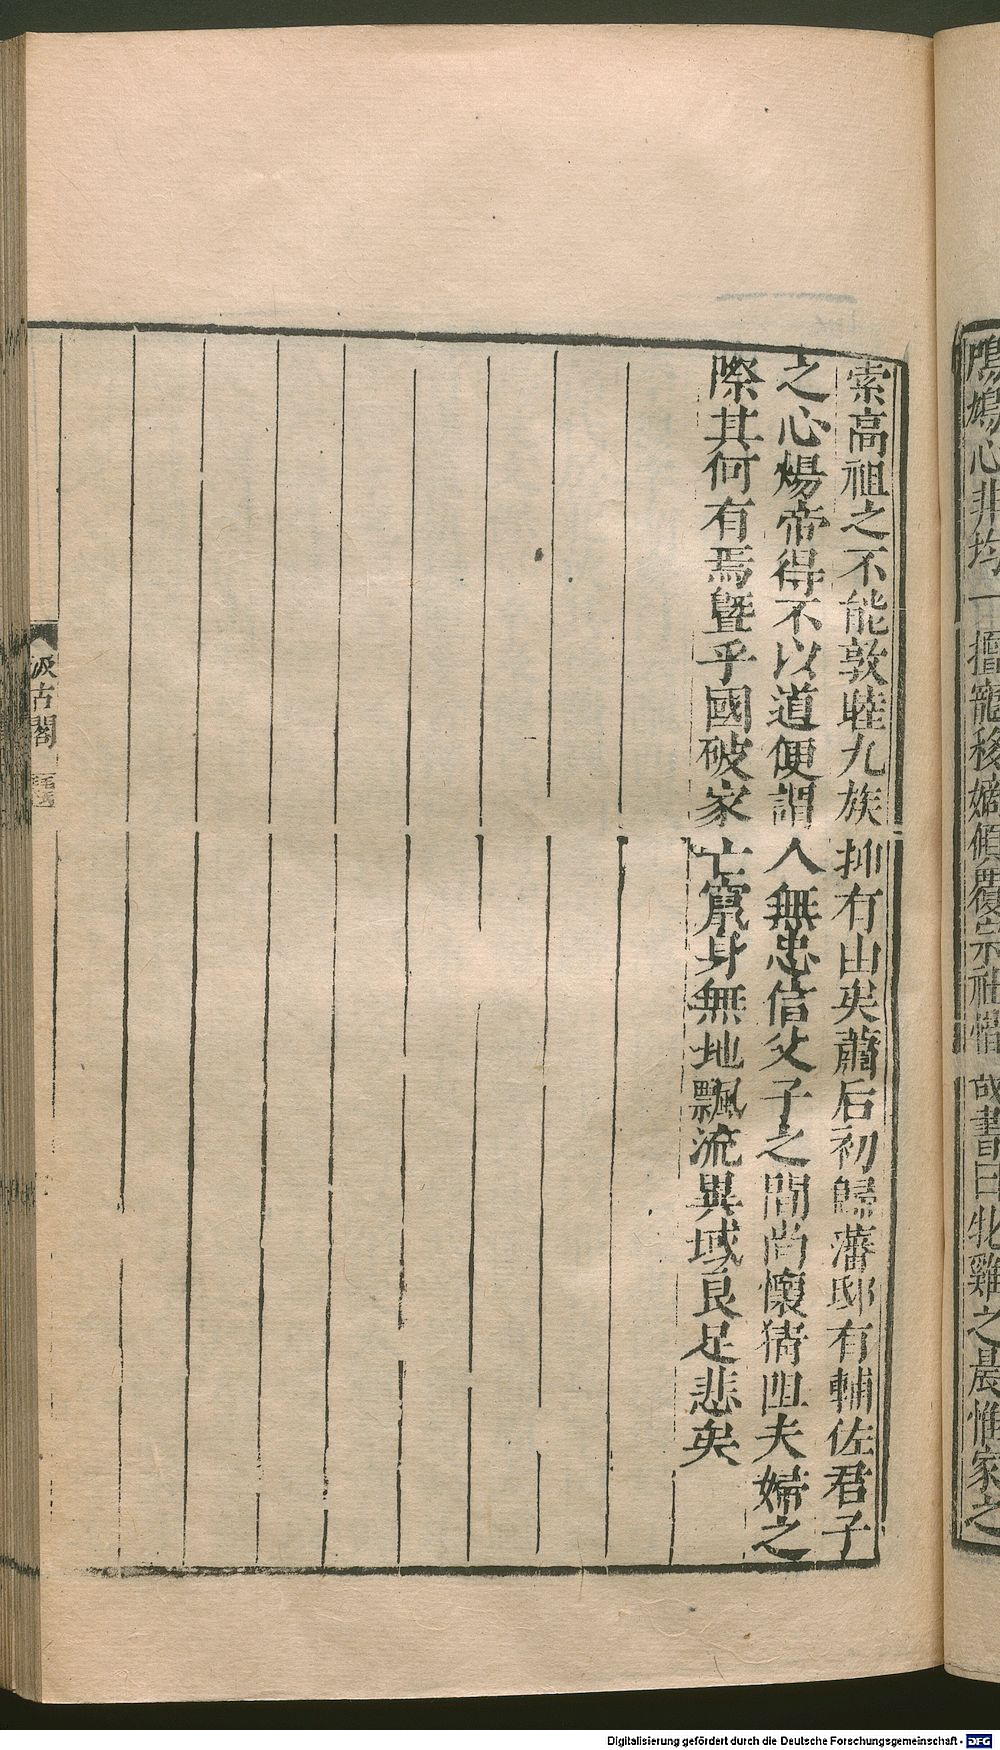 鳲鳩心非均一擅寵移嫡傾覆宗社惜哉書曰牝雞之晨惟家之
索高祖之不能敦睦九族抑有由矣蕭后初歸藩邸有輔佐君子
之心煬帝得不以道便謂人無忠信父子之間尚懷猜阻夫婦之
際其何有焉暨乎國破家亡竄身無地飄流異域良足悲矣
汲古閣
Digitalisierung gefördert durch die Deutsche Forschungsgemeinschaft - DFG